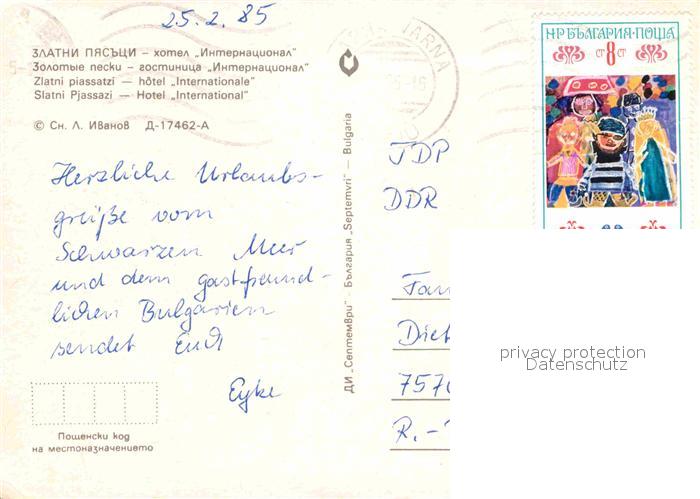 25.2.85
ЗЛАТНИ ПЯСЪЦИ – хотел „Интернационал"
Золотые пески – гостиница „Интернационал"
Zlatni piassatzi — hôtel „Internationale"
Slatni Pjassazi — Hotel „International"
© Сн. Л. Иванов Д-17462-А
Herzliche Urlaubs-
grüße vom
Schwarzen Meer
und dem gastfreund-
lichen Bulgarien
sendet Euch
Eyke
Пощенски код
на местоназначението
ДИ „Септември" · България „Septemvri" — Bulgaria
VARNA
НР БЪЛГАРИЯ·ПОЩА
СТ 8 СТ
DDR
Fam
Diet
757
R.-
privacy protection
Datenschutz